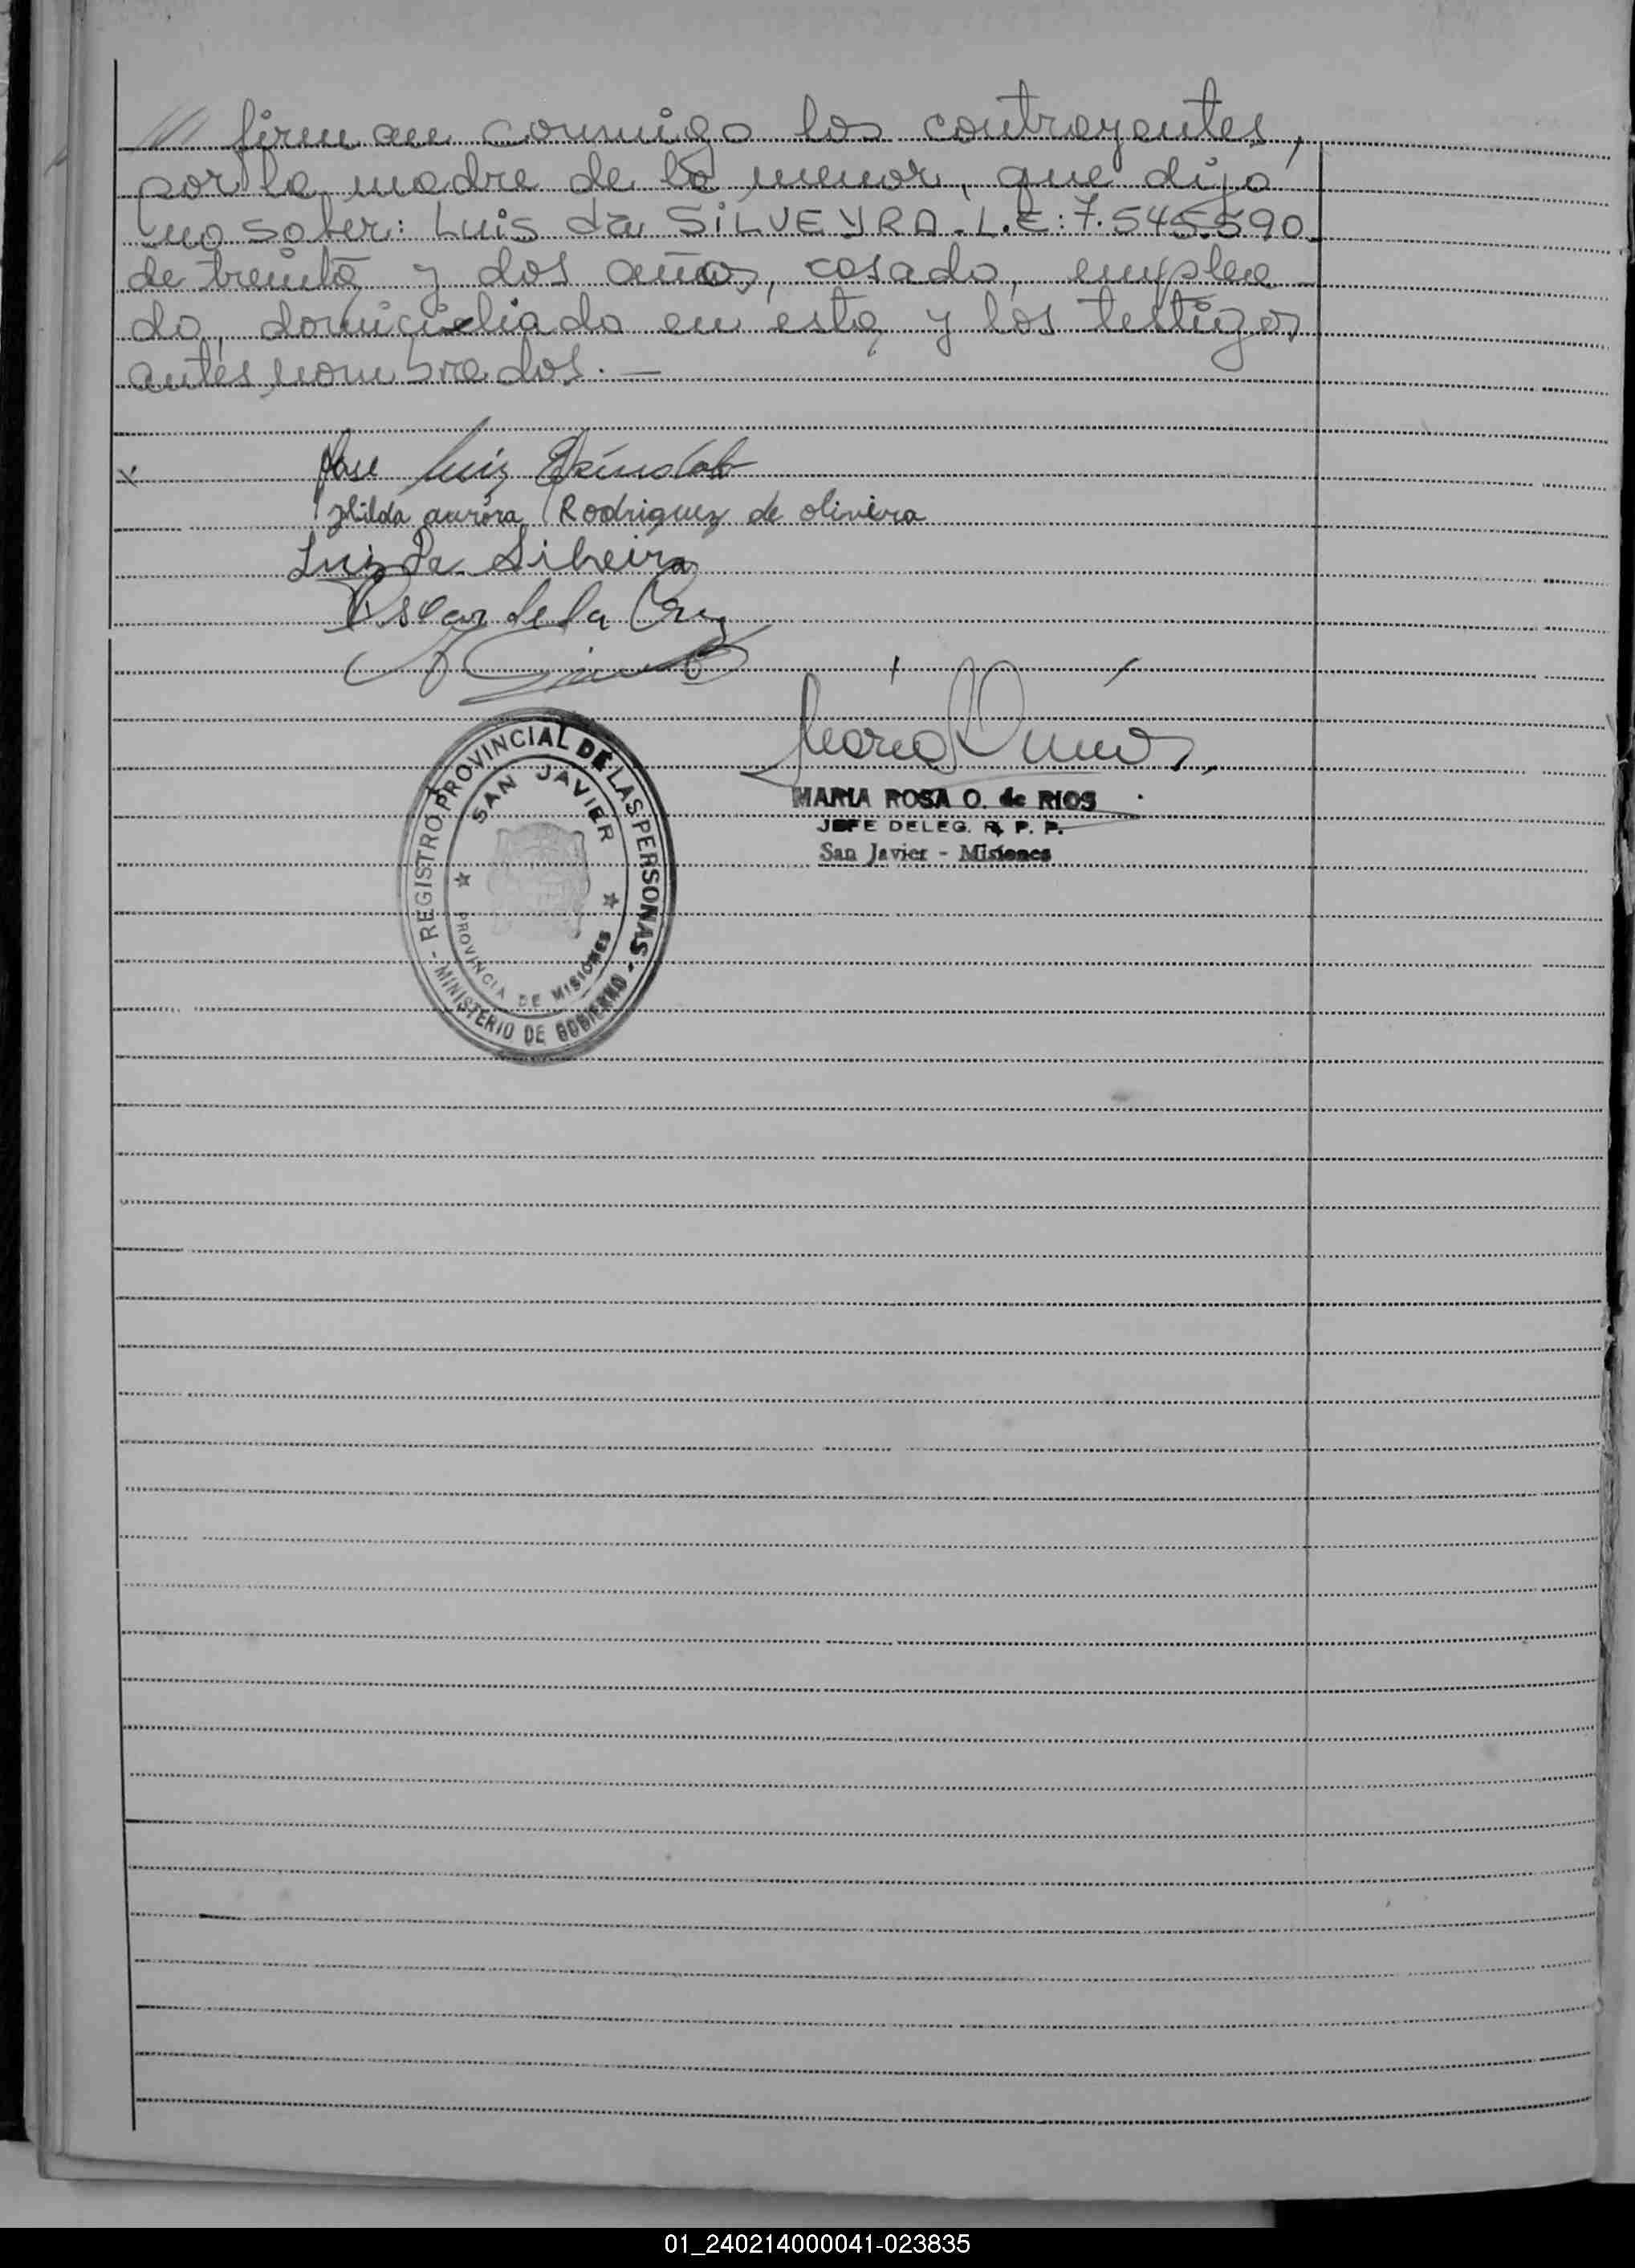 /// firman conmigo los contrayentes,
por la madre de la menor, que dijo
no saber: Luis da SILVEYRA. L.E: 7.545.590
de treinta y dos años, casado, emplea
do, domiciliado en esta, y los testigos
antes nombrados. —
Jose Luis
Hilda aurora Rodriguez de olivera
Luiz Da Silveira
Oscar de la Cruz
MARIA ROSA O. de RIOS
JEFE DELEG. R. P. P.
San Javier - Misiones
REGISTRO PROVINCIAL DE LAS PERSONAS
- MINISTERIO DE GOBIERNO -
SAN JAVIER
PROVINCIA DE MISIONES
01_240214000041-023835